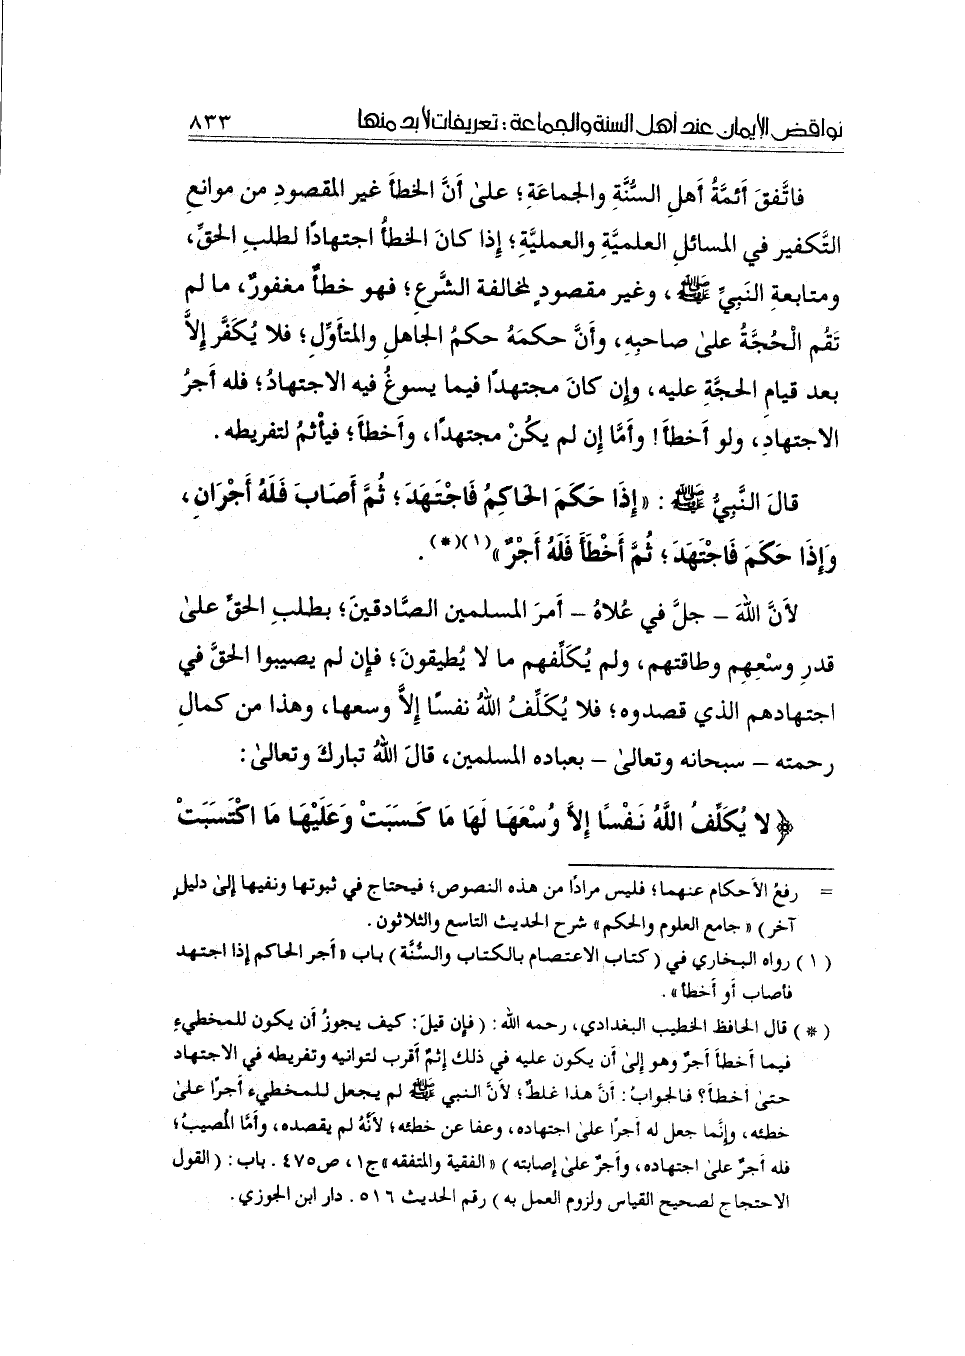 نواقض الإيمان عند أهل السنة والجماعة : تعريفات لابد منها ٨٣٣
فاتَّفقَ أئمَّةُ أهلِ السُّنَّةِ والجماعَةِ؛ علىٰ أنَّ الخطأَ غير المقصودِ من موانعِ
التَّكفير في المسائلِ العلميَّةِ والعمليَّةِ؛ إذا كانَ الخطأُ اجتهادًا لطلبِ الحقِّ،
ومتابعةِ النَّبِيِّ ﷺ، وغير مقصودٍ لمخالفة الشَّرعِ؛ فهو خطأٌ مغفورٌ، ما لم
تَقُم الْحُجَّةُ علىٰ صاحبِهِ، وأنَّ حكمَهُ حكمُ الجاهلِ والمتأوِّلِ؛ فلا يُكَفَّر إلاَّ
بعد قيام الحجَّةِ عليه، وإن كانَ مجتهدًا فيما يسوغُ فيه الاجتهادُ؛ فله أجرُ
الاجتهادِ، ولو أخطأ! وأمَّا إن لم يكُنْ مجتهدًا، وأخطأ؛ فيأثمُ لتفريطه.
قالَ النَّبيُّ ﷺ : «إِذَا حَكَمَ الحَاكِمُ فَاجْتَهَدَ؛ ثُمَّ أَصَابَ فَلَهُ أَجْرَانِ،
وَإِذَا حَكَمَ فَاجْتَهَدَ؛ ثُمَّ أَخْطَأَ فَلَهُ أَجْرٌ»(١)(*).
لأنَّ اللهَ – جلَّ في عُلاهُ – أمرَ المسلمين الصَّادقينَ؛ بطلبِ الحقِّ علىٰ
قدرِ وسْعِهِم وطاقتهم، ولم يُكَلِّفهم ما لا يُطيقونَ؛ فإن لم يصيبوا الحقَّ في
اجتهادهم الذي قصدوه؛ فلا يُكَلِّفُ اللهُ نفسًا إلاَّ وسعها، وهذا من كمالِ
رحمته – سبحانه وتعالىٰ – بعباده المسلمين، قالَ اللهُ تبارك وتعالىٰ:
﴿لا يُكَلِّفُ اللَّهُ نَفْسًا إِلاَّ وُسْعَهَا لَهَا مَا كَسَبَتْ وَعَلَيْهَا مَا اكْتَسَبَتْ
= رفعُ الأحكام عنهما؛ فليس مرادًا من هذه النصوص؛ فيحتاج في ثبوتها ونفيها إلىٰ دليلٍ
آخر) «جامع العلوم والحكم» شرح الحديث التاسع والثلاثون.
(١) رواه البخاري في (كتاب الاعتصام بالكتاب والسُّنَّة) باب «أجر الحاكم إذا اجتهد
فأصاب أو أخطأ».
(*) قال الحافظ الخطيب البغدادي، رحمه الله: (فإن قيلَ: كيف يجوزُ أن يكون للمخطيءِ
فيما أخطأ أجرٌ وهو إلىٰ أن يكون عليه في ذلك إثمٌ أقرب لتوانيه وتفريطه في الاجتهاد
حتىٰ أخطأ؟ فالجوابُ: أنَّ هذا غلطٌ؛ لأنَّ النبي ﷺ لم يجعل للمخطيء أجرًا علىٰ
خطئه، وإنَّما جعل له أجرًا علىٰ اجتهاده، وعفا عن خطئه؛ لأنَّهُ لم يقصده، وأمَّا المُصيبُ؛
فله أجرٌ علىٰ اجتهاده، وأجرٌ علىٰ إصابته) «الفقية والمتفقه» ج١، ص٤٧٥. باب: (القول
الاحتجاج لصحيح القياس ولزوم العمل به) رقم الحديث ٥١٦. دار ابن الجوزي.